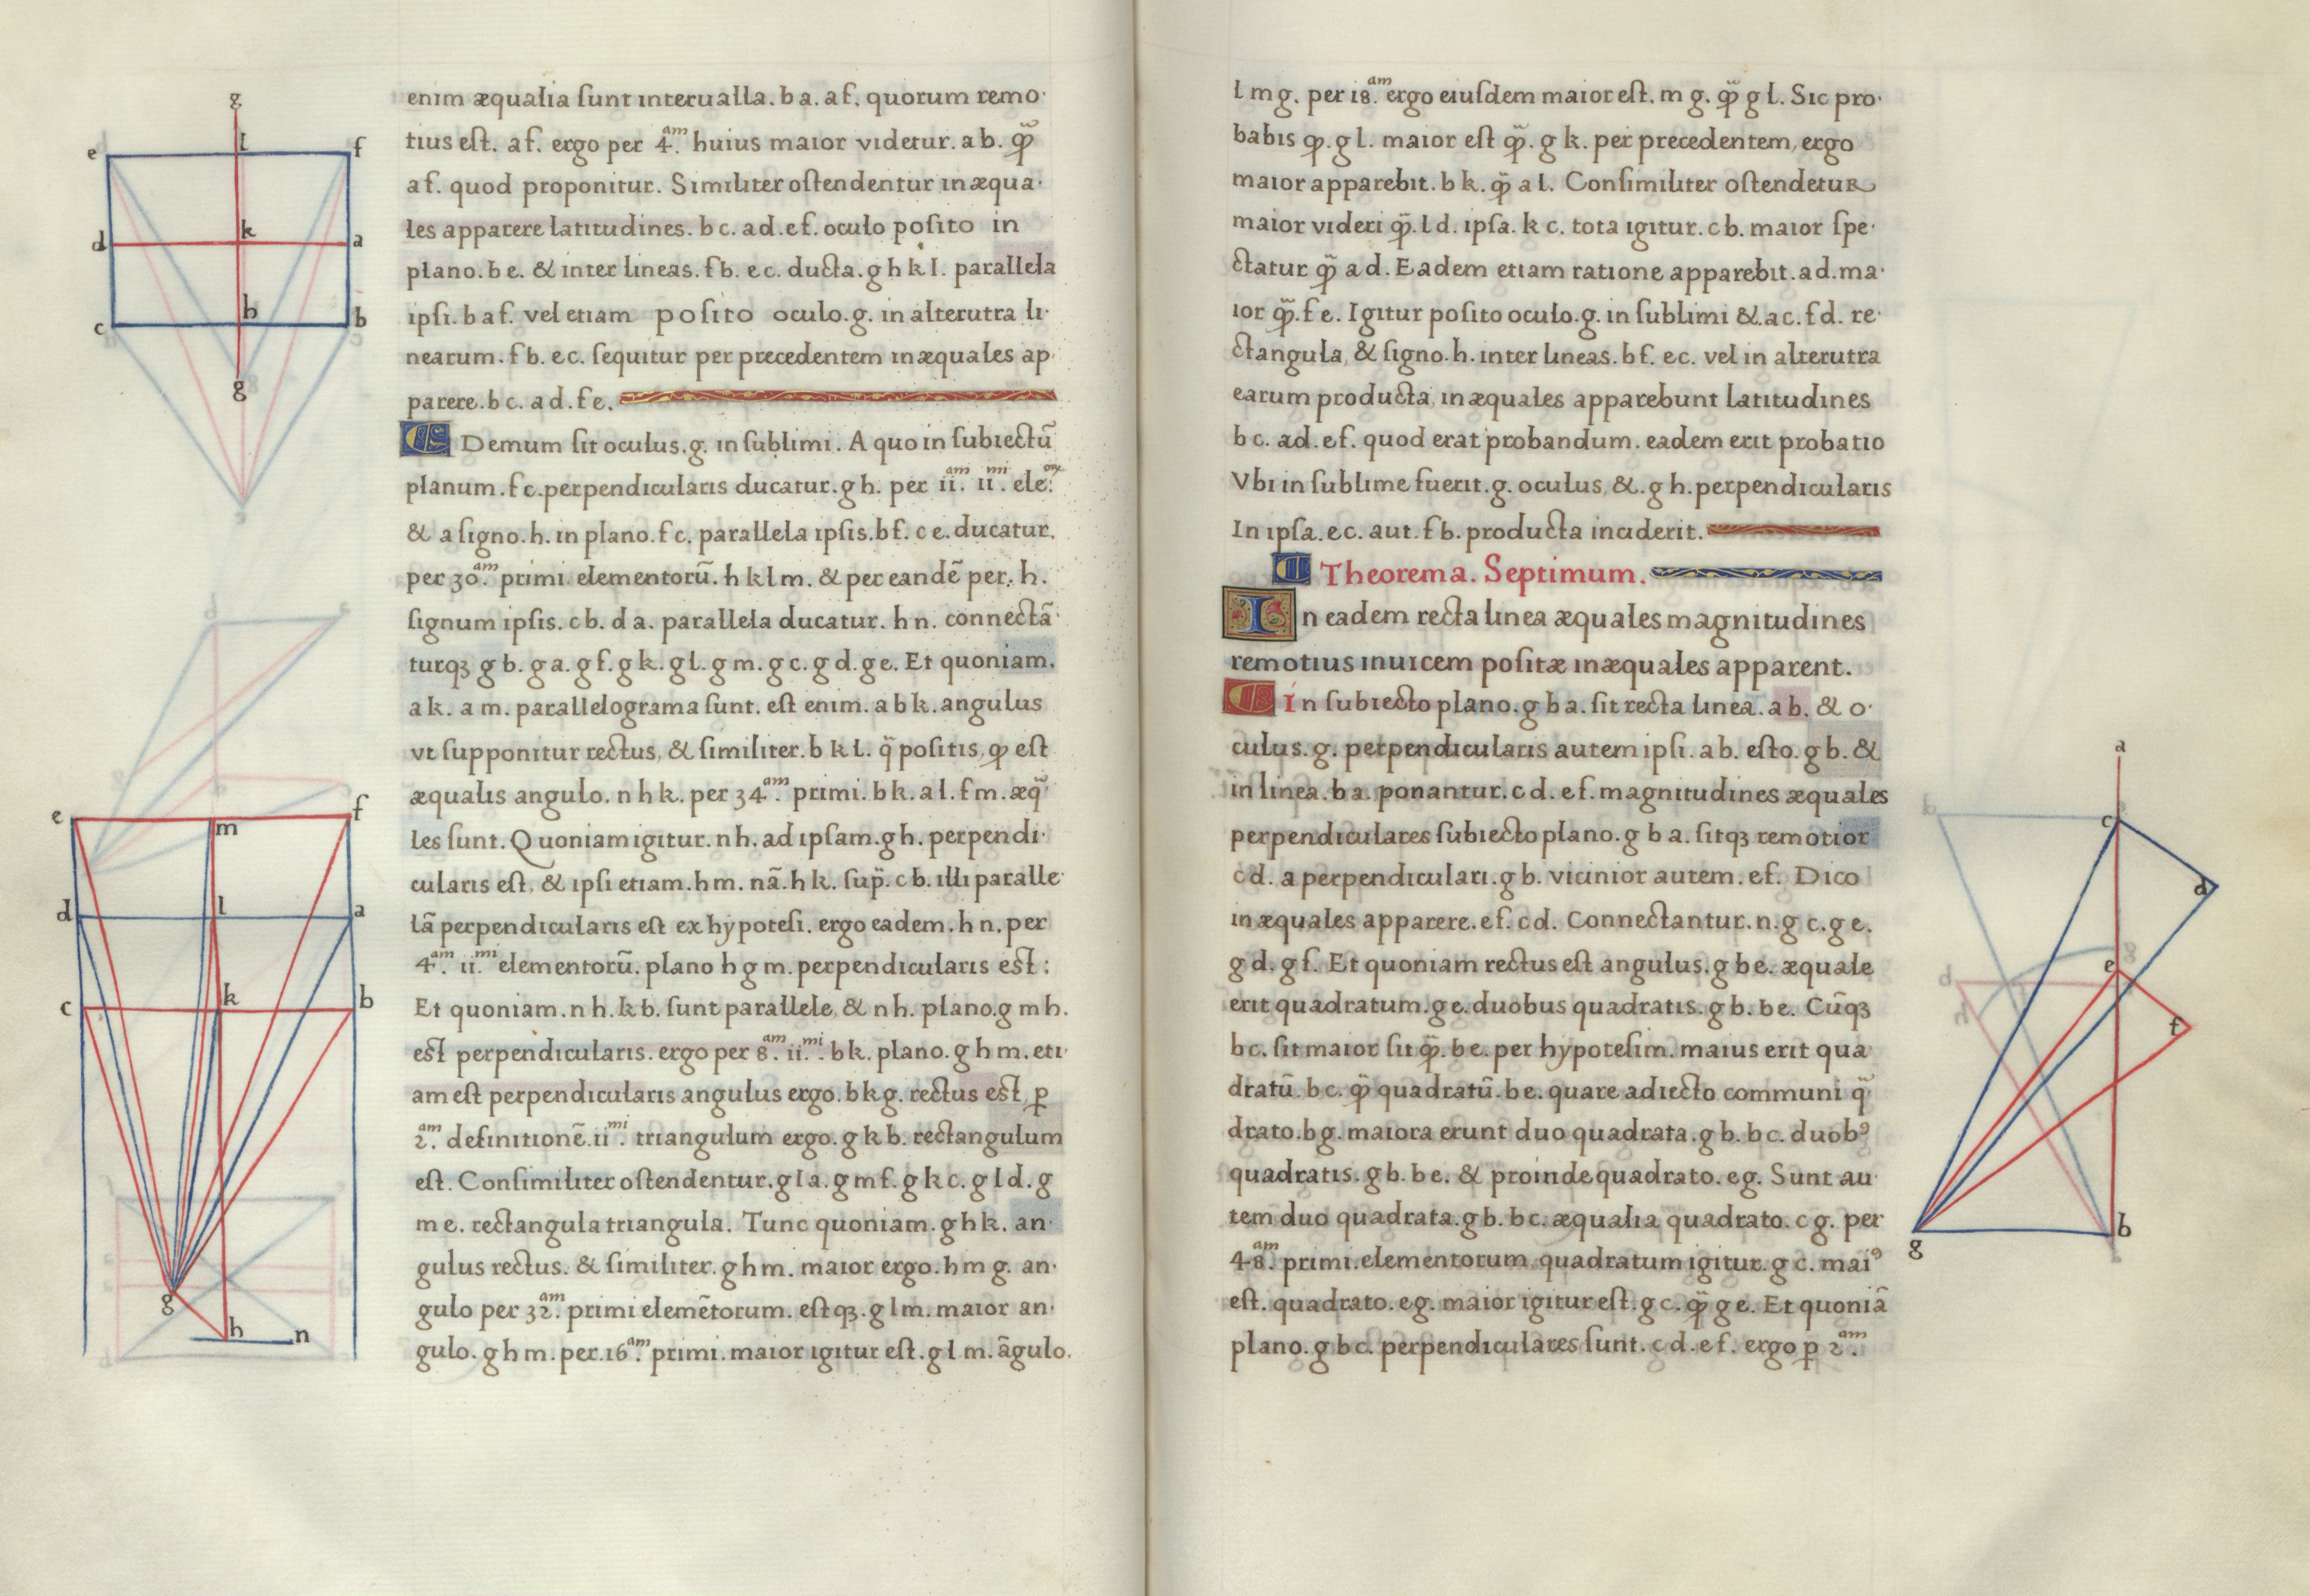 enim æqualia ſunt interualla. b a. a f. quorum remo·
tius eſt. a f. ergo per 4.am huius maior videtur. a b. ꝙ̃
a f. quod proponitur. Similiter oſtendentur inæqua·
les apparere latitudines. b c. a d. e f. oculo poſito in
plano. b e. & inter lineas. f b. e c. ducta. g h k l. parallela
ipſi. b a f. vel etiam poſito oculo. g. in alterutra li·
nearum. f b. e c. ſequitur per precedentem inæquales ap·
parere. b c. a d. f e.
Demum ſit oculus. g. in ſublimi. A quo in ſubiectũ
planum. f c. perpendicularis ducatur. g h. per ii.am ii.mi ele:
& a ſigno. h. in plano. f c. parallela ipſis. b f. c e. ducatur.
per 30.am primi elementorũ. h k l m. & per eandẽ per. h.
ſignum ipſis. c b. d a. parallela ducatur. h n. connectã·
turqꝫ g b. g a. g f. g k. g l. g m. g c. g d. g e. Et quoniam.
a k. a m. parallelograma ſunt. eſt enim. a b k. angulus
vt ſupponitur rectus, & ſimiliter. b k l. q̃ poſitis, ꝙ eſt
æqualis angulo. n h k. per 34.am primi. b k. a l. f m. æq̃
les ſunt. Quoniam igitur. n h. ad ipſam. g h. perpendi·
cularis eſt, & ipſi etiam. h m. nã. h k. ſup̃. c b. illi paralle·
lã perpendicularis eſt ex hypoteſi. ergo eadem. h n. per
4.am ii.mi elementorũ. plano h g m. perpendicularis eſt:
Et quoniam. n h. k b. ſunt parallele, & n h. plano. g m h.
eſt perpendicularis. ergo per 8.am ii.mi b k. plano. g h m. eti·
am eſt perpendicularis angulus ergo. b k g. rectus eſt, ꝑ
2.am definitionẽ. ii.mi triangulum ergo. g k b. rectangulum
eſt. Conſimiliter oſtendentur. g l a. g m f. g k c. g l d. g
m e. rectangula triangula. Tunc quoniam. g h k. an·
gulus rectus. & ſimiliter. g h m. maior ergo. h m g. an·
gulo per 32.am primi elemẽtorum. eſtqꝫ. g l m. maior an·
gulo. g h m. per. 16.am primi. maior igitur eſt. g l m. ãgulo.
g
e
l
f
d
k
a
c
h
b
g
e
m
f
d
l
a
c
k
b
g
h
n
l m g. per 18.am ergo eiuſdem maior eſt. m g. ꝙ̃ g l. Sic pro·
babis ꝙ. g l. maior eſt ꝙ̃. g k. per precedentem, ergo
maior apparebit. b k. ꝙ̃ a l. Conſimiliter oſtendetur
maior videri ꝙ̃. l d. ipſa. k c. tota igitur. c b. maior ſpe·
ctatur ꝙ̃ a d. Eadem etiam ratione apparebit. a d. ma·
ior ꝙ̃. f e. Igitur poſito oculo. g. in ſublimi &. a c. f d. re·
ctangula, & ſigno. h. inter lineas. b f. e c. vel in alterutra
earum producta, inæquales apparebunt latitudines
b c. a d. e f. quod erat probandum. eadem erit probatio
Vbi in ſublime fuerit. g. oculus, &. g h. perpendicularis
In ipſa. e c. aut. f b. producta inciderit.
Theorema. Septimum.
In eadem recta linea æquales magnitudines
remotius inuicem poſitæ inæquales apparent.
In ſubiecto plano. g b a. ſit recta linea. a b. & o·
culus. g. perpendicularis autem ipſi. a b. eſto. g b. &
in linea. b a. ponantur. c d. e f. magnitudines æquales
perpendiculares ſubiecto plano. g b a. ſitqꝫ remotior
c d. a perpendiculari. g b. vicinior autem. e f. Dico
inæquales apparere. e f. c d. Connectantur. n. g c. g e.
g d. g f. Et quoniam rectus eſt angulus. g b e. æquale
erit quadratum. g e. duobus quadratis. g b. b e. Cũqꝫ
b c. ſit maior ſit ꝙ̃. b e. per hypoteſim. maius erit qua·
dratũ. b c. ꝙ̃ quadratũ. b e. quare adiecto communi q̃·
drato. b g. maiora erunt duo quadrata. g b. b c. duobꝰ
quadratis. g b. b e. & proinde quadrato. e g. Sunt au·
tem duo quadrata. g b. b c. æqualia quadrato. c g. per
48.am primi. elementorum, quadratum igitur. g c. maiꝰ
eſt. quadrato. e g. maior igitur eſt. g c. ꝙ̃ g e. Et quoniã
plano. g b c. perpendiculares ſunt. c d. e f. ergo ꝑ 2.am
a
c
d
e
f
g
b